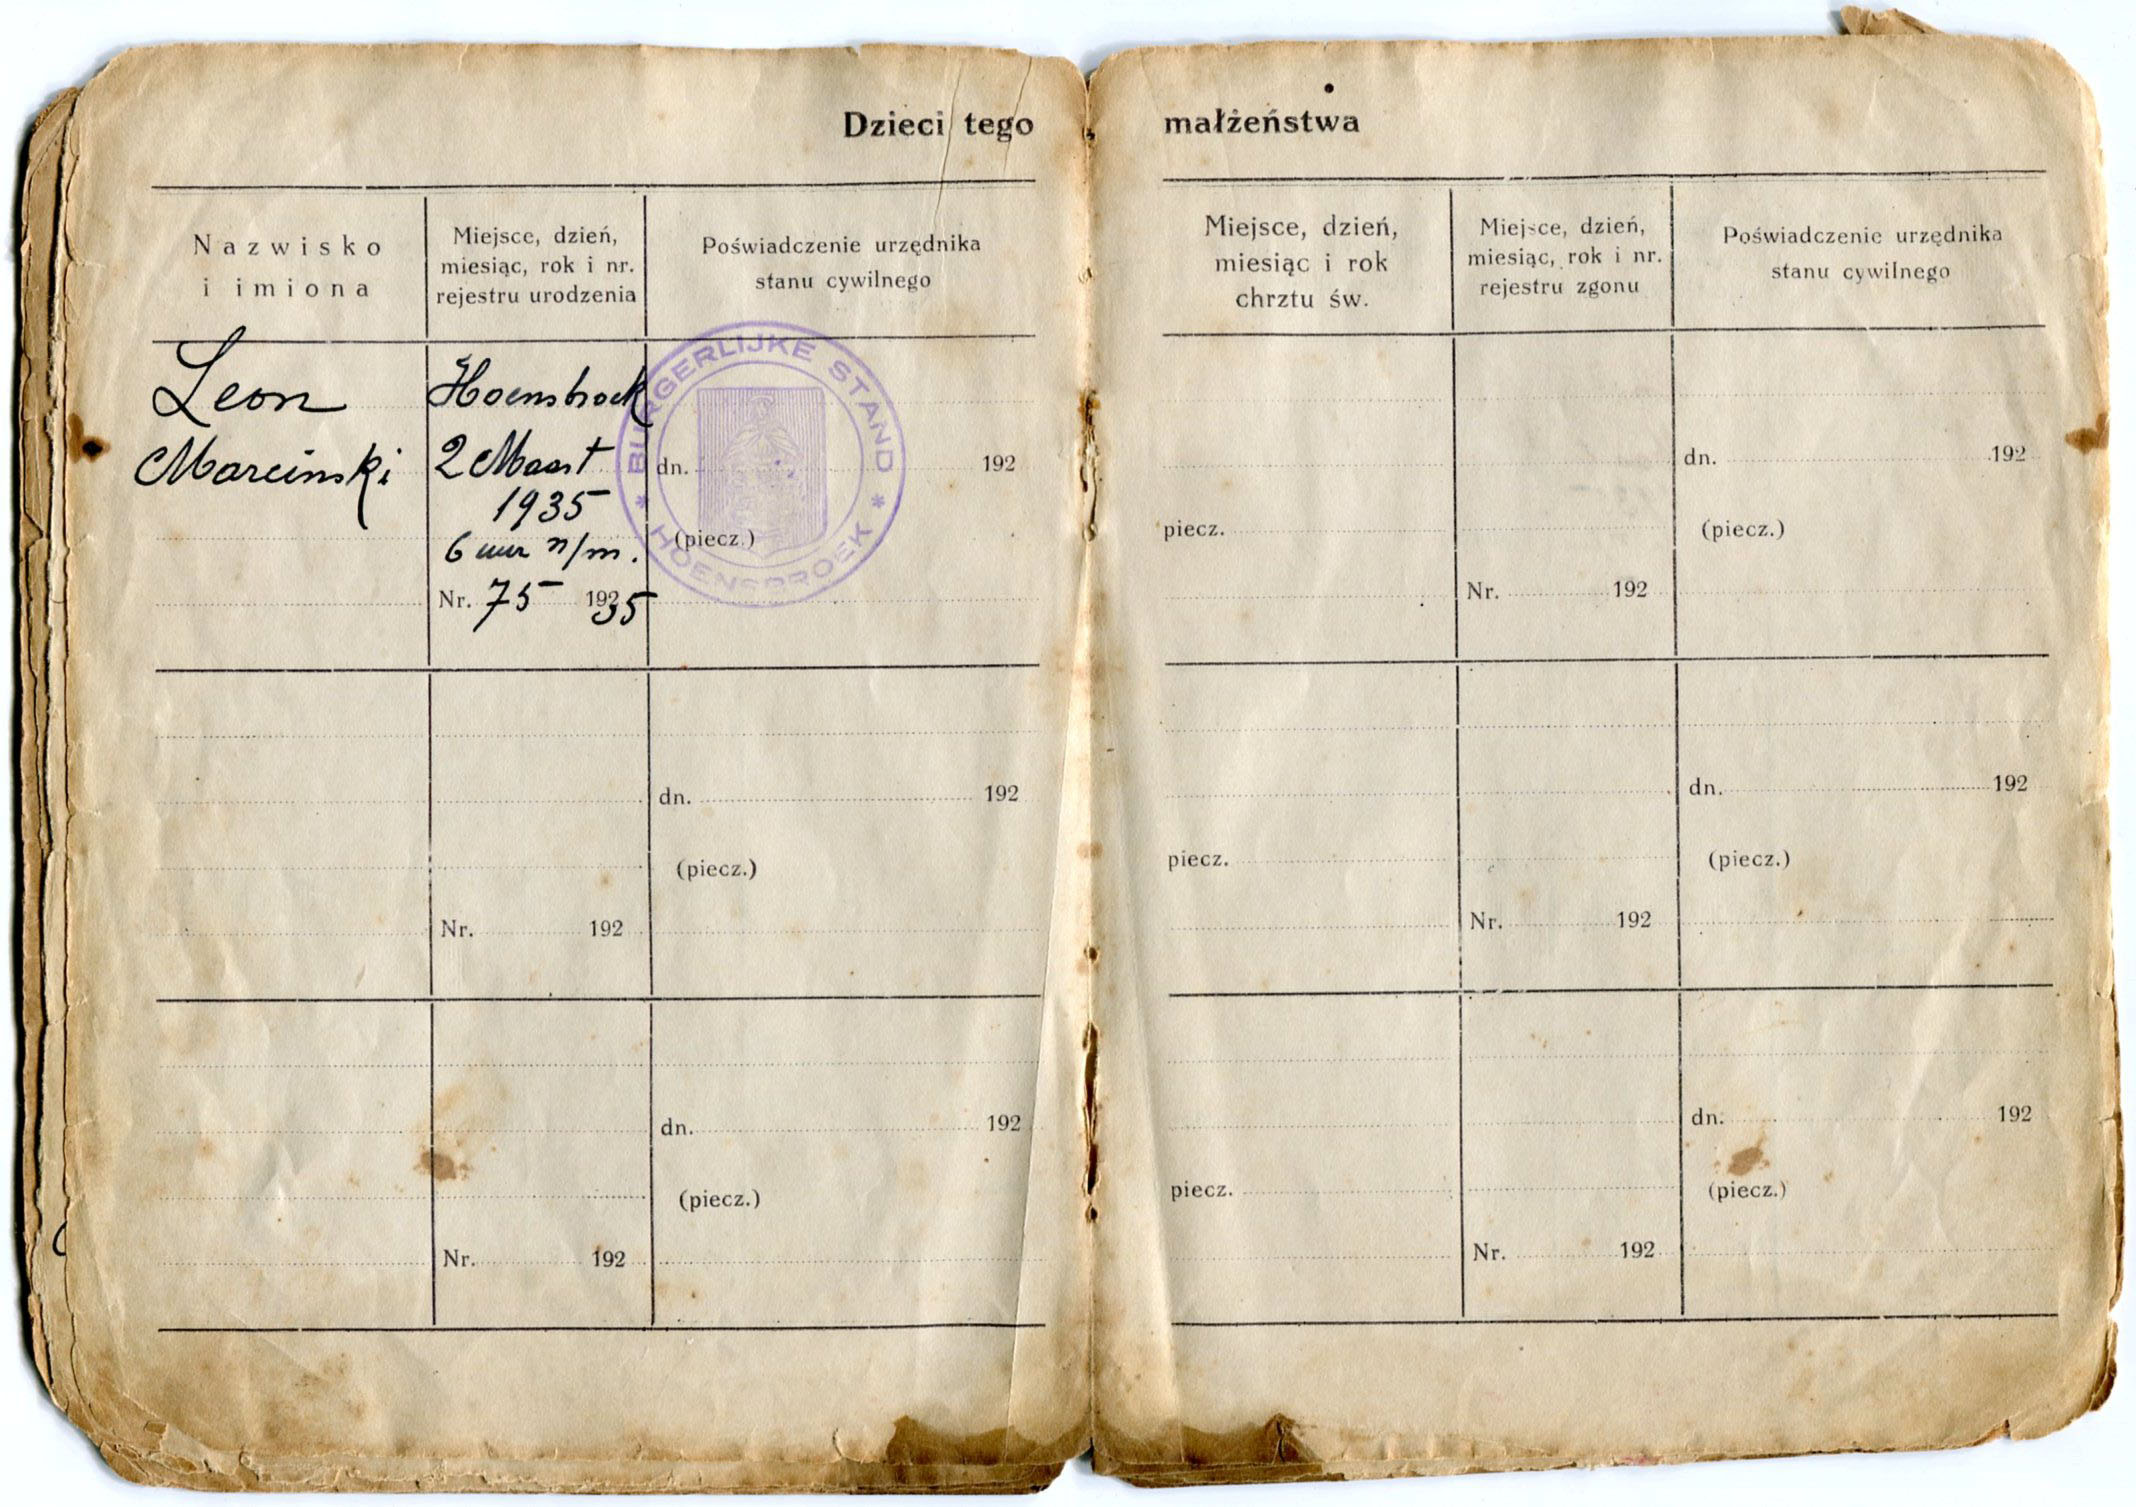 Dzieci tego małżeństwa
Nazwisko
i imiona
Miejsce, dzień,
miesiąc, rok i nr.
rejestru urodzenia
Poświadczenie urzędnika
stanu cywilnego
Miejsce, dzień,
miesiąc i rok
chrztu św.
Miejsce, dzień,
miesiąc, rok i nr.
rejestru zgonu
Poświadczenie urzędnika
stanu cywilnego
Leon
Marcinski
Hoensbroek
2 Maart
1935
6 uur n/m.
Nr. 75 192 35
BURGERLIJKE STAND
* HOENSBROEK *
dn. 192
(piecz.)
piecz.
Nr. 192
dn. 192
(piecz.)
Nr. 192
dn. 192
(piecz.)
piecz.
Nr. 192
dn. 192
(piecz.)
Nr. 192
dn. 192
(piecz.)
piecz.
Nr. 192
dn. 192
(piecz.)